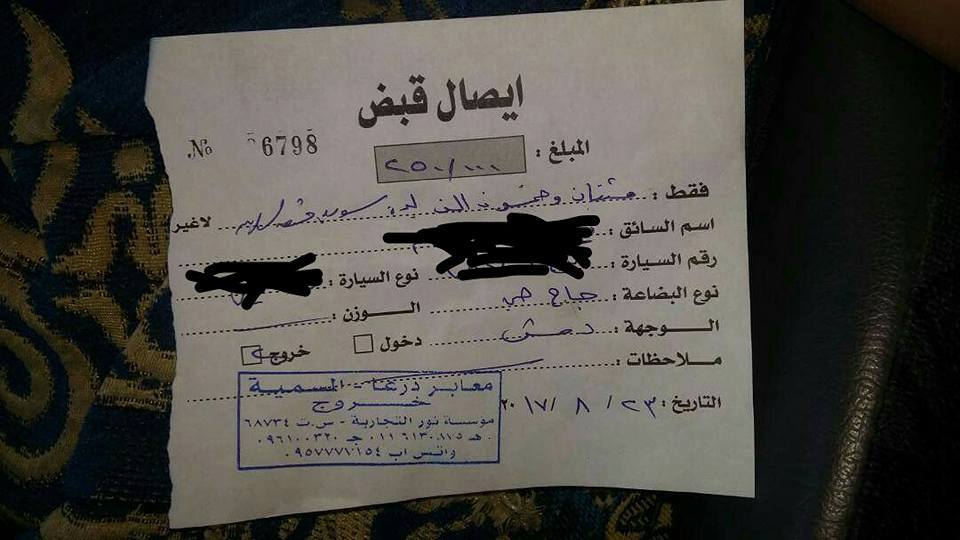 ايصال قبض
№ 6798
المبلغ : ٢٥٠/٠٠٠
فقط : مئتان وخمسون الف ليرة سورية لاغير
اسم السائق :
رقم السيارة : نوع السيارة :
نوع البضاعة : دجاج حي
الوجهة : دمشق الوزن :
ملاحظات : دخول خروج
التاريخ : ٢٣ / ٨ / ٢٠١٧
معابر درعا - المسمية
خروج
مؤسسة نور التجارية - س.ت ٦٨٧٣٤
هـ ٠١١٦١٣٠١١٥ جـ ٠٩٦١٠٠٣٢٠
واتس اب ٠٩٥٧٧٧١١٥٤